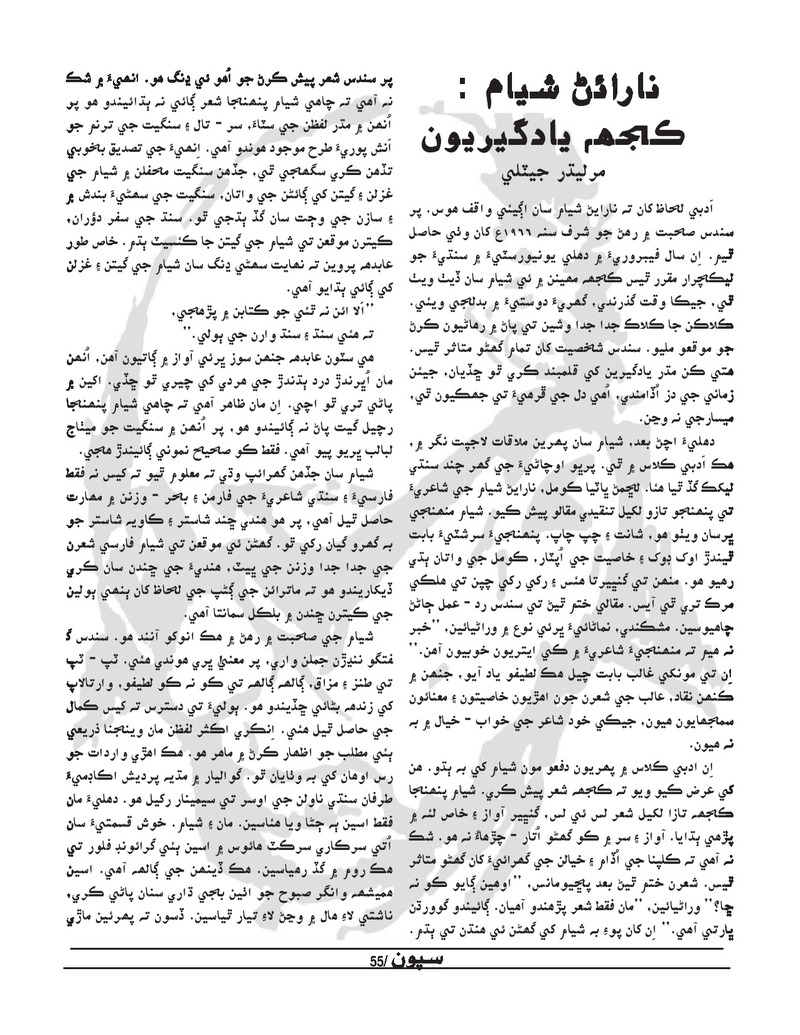 نارائڻ شيام :
ڪجهہ يادگيريون
مرليڌر جيٽلي
اَدبي لحاظ کان تہ نارايڻ شيام سان اڳيئي واقف هوس. پر
سندس صحبت ۾ رهڻ جو شرف سنہ ۱۹٦٦ع کان وٺي حاصل
ٿيم. اِن سال فيبروريءَ ۾ دهلي يونيورسٽيءَ ۾ سنڌيءَ جو
ليڪچرار مقرر ٿيس ڪجهہ مهينن ۾ ئي شيام سان ڏيٺ ويٺ
ٿي، جيڪا وقت گذرندي، گهريءَ دوستيءَ ۾ بدلجي ويئي.
ڪلاڪن جا ڪلاڪ جدا جدا وشين تي پاڻ ۾ رهاڻيون ڪرڻ
جو موقعو مليو. سندس شخصيت کان تمام گهڻو متاثر ٿيس.
هتي ڪن مڌر يادگيرين کي قلمبند ڪري ٿو ڇڏيان، جيئن
زماني جي دز اُڏامندي، اُهي دل جي قرهيءَ تي جهڪيون ٿي،
ميسارجي نہ وڃن.
دهليءَ اچڻ بعد، شيام سان پهرين ملاقات لاجپت نگر ۾،
هڪ اَدبي ڪلاس ۾ ٿي. پرڀو اوڇاڻيءَ جي گهر چند سنڌي
ليکڪ گڏ ٿيا هئا. لڇمڻ ڀاٽيا ڪومل، نارايڻ شيام جي شاعريءَ
تي پنهنجو تازو لکيل تنقيدي مقالو پيش ڪيو. شيام منهنجي
ڀرسان ويٺو هو، شانت ۽ چپ چاپ. پنهنجيءَ سرشٽيءَ بابت
ٿيندڙ اوک ڊوک ۽ خاصيت جي اُپٽار، ڪومل جي واتان ٻڌي
رهيو هو. منهن تي گنڀيرتا هئس ۽ رکي رکي چپن تي هلڪي
مرڪ تري ٿي آيس. مقالي ختم ٿيڻ تي سندس رد - عمل ڄاڻڻ
چاهيوسين. مشڪندي، نماڻائيءَ ڀرئي نوع ۾ وراڻيائين، ’’خبر
نہ هيم تہ منهنجيءَ شاعريءَ ۾ ڪي ايتريون خوبيون آهن.‘‘
اِن تي مونکي غالب بابت چيل هڪ لطيفو ياد آيو، جنهن ۾
ڪنهن نقاد، غالب جي شعرن جون اهڙيون خاصيتون ۽ معنائون
سمجهايون هيون، جيڪي خود شاعر جي خواب - خيال ۾ بہ
نہ هيون.
اِن ادبي ڪلاس ۾ پهريون دفعو مون شيام کي بہ ٻڌو. هن
کي عرض ڪيو ويو تہ ڪجهہ شعر پيش ڪري. شيام پنهنجا
ڪجهہ تازا لکيل شعر لس ئي لس، گنڀير آواز ۽ خاص لئہ ۾
پڙهي ٻڌايا. آواز ۽ سر ۾ ڪو گهڻو اُتار - چڙهاءُ نہ هو. شڪ
نہ آهي تہ ڪلپنا جي اُڏام ۽ خيالن جي گهرائيءَ کان گهڻو متاثر
ٿيس. شعرن ختم ٿيڻ بعد پاڇيومانس، ’’اوهين ڳايو ڪو نہ
ڇا؟‘‘ وراڻيائين، ’’مان فقط شعر پڙهندو آهيان. ڳائيندو گووردن
ڀارتي آهي.‘‘ اِن کان پوءِ بہ شيام کي گهڻن ئي هنڌن تي ٻڌم.
پر سندس شعر پيش ڪرڻ جو اُهو ئي ڍنگ هو. انهيءَ ۾ شڪ
نہ آهي تہ چاهي شيام پنهنجا شعر ڳائي نہ ٻڌائيندو هو پر
اُنهن ۾ مڌر لفظن جي سٽاءَ، سر - تال ۽ سنگيت جي ترنم جو
اَنش پوريءَ طرح موجود هوندو آهي. اِنهيءَ جي تصديق بخوبي
تڏهن ڪري سگهجي ٿي، جڏهن سنگيت محفلن ۾ شيام جي
غزلن ۽ گيتن کي ڳائڻن جي واتان، سنگيت جي سهڻيءَ بندش ۾
۽ سازن جي وڄت سان گڏ ٻڌجي ٿو. سنڌ جي سفر دؤران،
ڪيترن موقعن تي شيام جي گيتن جا ڪئسيٽ ٻڌم. خاص طور
عابدهہ پروين تہ نهايت سهڻي ڍنگ سان شيام جي گيتن ۽ غزلن
کي ڳائي ٻڌايو آهي.
’’اَلا ائن نہ ٿئي جو ڪتابن ۾ پڙهجي،
تہ هئي سنڌ ۽ سنڌ وارن جي ٻولي.‘‘
هي سٽون عابدهہ جنهن سوز ڀرئي آواز ۾ ڳاتيون آهن، اُنهن
مان اُڀرندڙ درد ٻڌندڙ جي هردي کي چيري ٿو ڇڏي. اکين ۾
پاڻي تري ٿو اچي. اِن مان ظاهر آهي تہ چاهي شيام پنهنجا
رچيل گيت پاڻ نہ ڳائيندو هو، پر اُنهن ۾ سنگيت جو ميٺاج
لبالب ڀريو پيو آهي. فقط ڪو صحيح نموني ڳائيندڙ هجي.
شيام سان جڏهن گهرائپ وڌي تہ معلوم ٿيو تہ کيس نہ فقط
فارسيءَ ۽ سنڌي شاعريءَ جي فارمن ۽ بحر - وزنن ۾ مهارت
حاصل ٿيل آهي، پر هو هندي ڇند شاستر ۽ ڪاويہ شاستر جو
بہ گهرو گيان رکي ٿو. گهڻن ئي موقعن تي شيام فارسي شعرن
جي جدا جدا وزنن جي ڀيٽ، هنديءَ جي ڇندن سان ڪري
ڏيکاريندو هو تہ ماترائن جي ڳڻپ جي لحاظ کان ٻنهي ٻولين
جي ڪيترن ڇندن ۾ بلڪل سمانتا آهي.
شيام جي صحبت ۾ رهڻ ۾ هڪ انوکو آنند هو. سندس گ
فتگو ننڍڙن جملن واري، پر معنيٰ ڀري هوندي هئي. ٽپ - ٽپ
تي طنز ۽ مزاق، ڳالهہ ڳالهہ تي ڪو نہ ڪو لطيفو، وارتالاپ
کي زندهہ بڻائي ڇڏيندو هو. ٻوليءَ تي دسترس تہ کيس ڪمال
جي حاصل ٿيل هئي. اِنڪري اڪثر لفظن مان وينجنا ذريعي
ٻئي مطلب جو اظهار ڪرڻ ۾ ماهر هو. هڪ اهڙي واردات جو
رس اوهان کي بہ وٺايان ٿو. گواليار ۾ مڌيہ پرديش اڪاڊميءَ
طرفان سنڌي ناولن جي اوسر تي سيمينار رکيل هو. دهليءَ مان
فقط اسين ٻہ ڄڻا ويا هئاسين. مان ۽ شيام. خوش قسمتيءَ سان
اُتي سرڪاري سرڪٽ هائوس ۾ اسين ٻئي گرائونڊ فلور تي
هڪ روم ۾ گڏ رهياسين. هڪ ڏينهن جي ڳالهہ آهي. اسين
هميشهہ وانگر صبوح جو اٺين باجي ڌاري سنان پاڻي ڪري،
ناشتي لاءِ هال ۾ وڃڻ لاءِ تيار ٿياسين. ڏسون تہ پهرئين ماڙي
سپون /55